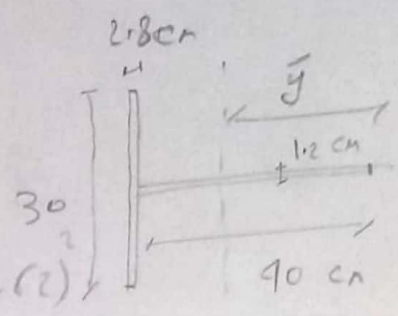 2.8cm
ȳ
1.2 cm
30
?
(2)
40 cm